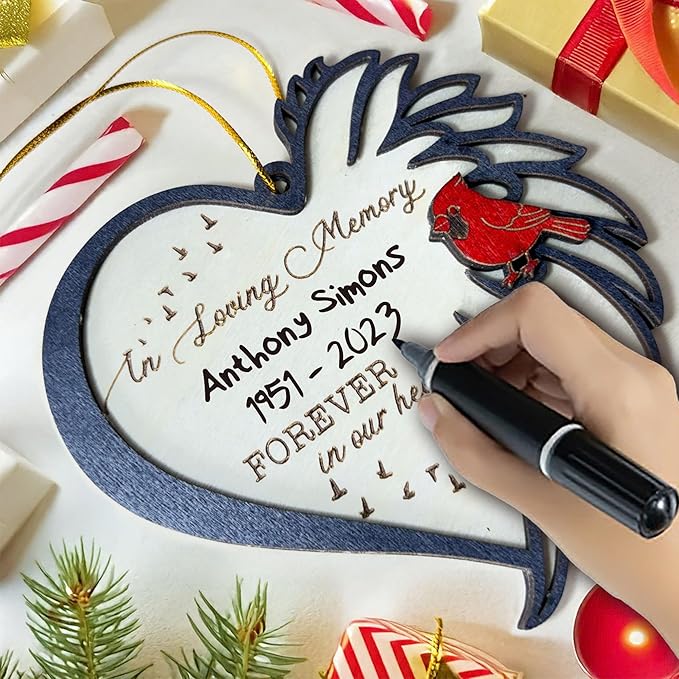 In Loving Memory
Anthony Simons
1951 - 2023
FOREVER
in our